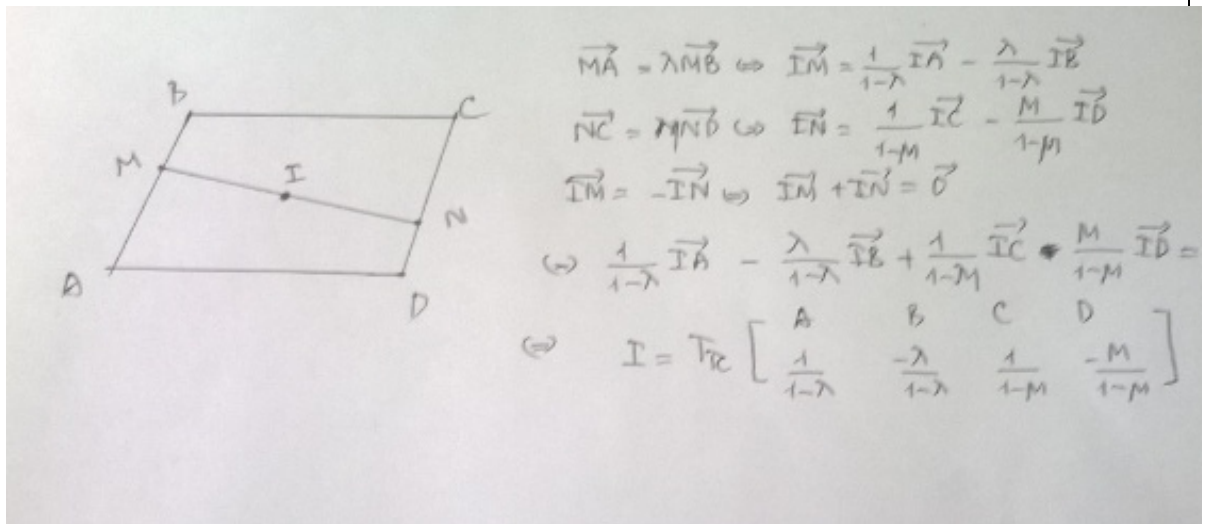 B
C
M
I
N
A
D
$\overrightarrow{MA} = \lambda \overrightarrow{MB} \Leftrightarrow \overrightarrow{IM} = \frac{1}{1-\lambda} \overrightarrow{IA} - \frac{\lambda}{1-\lambda} \overrightarrow{IB}$
$\overrightarrow{NC} = \mu \overrightarrow{ND} \Leftrightarrow \overrightarrow{IN} = \frac{1}{1-\mu} \overrightarrow{IC} - \frac{\mu}{1-\mu} \overrightarrow{ID}$
$\overrightarrow{IM} = -\overrightarrow{IN} \Leftrightarrow \overrightarrow{IM} + \overrightarrow{IN} = \vec{0}$
$\Leftrightarrow \frac{1}{1-\lambda} \overrightarrow{IA} - \frac{\lambda}{1-\lambda} \overrightarrow{IB} + \frac{1}{1-\mu} \overrightarrow{IC} - \frac{\mu}{1-\mu} \overrightarrow{ID} =$
A B C D
$\Leftrightarrow I = T_{TC} \left[ \frac{1}{1-\lambda} \quad \frac{-\lambda}{1-\lambda} \quad \frac{1}{1-\mu} \quad \frac{-\mu}{1-\mu} \right]$